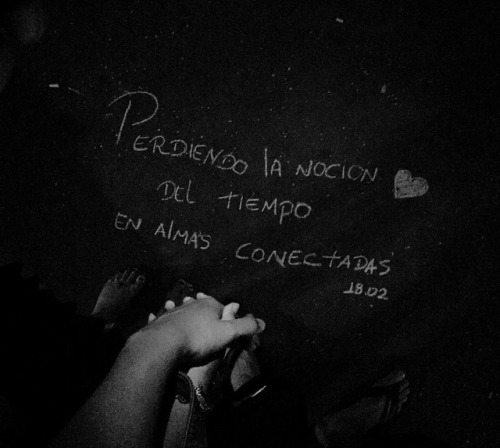 PERDIENDO lA NOCION
DEL tIEMPO
EN AlMAS CONECtADAS
18.02